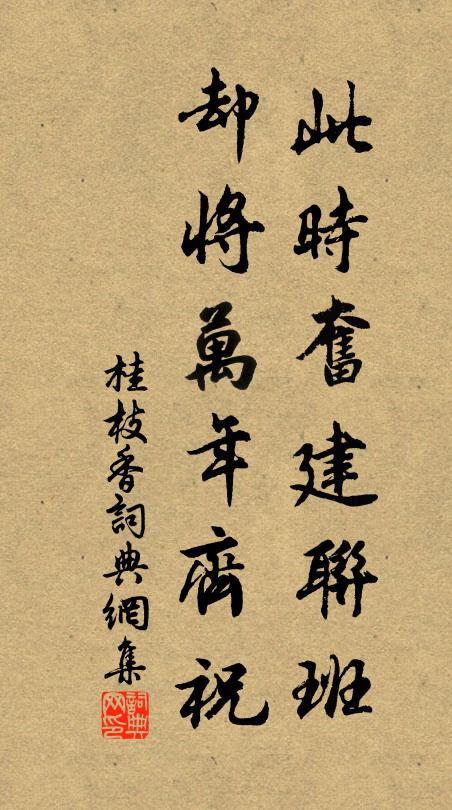 此時奮建聯班
却將萬年齊祝
桂枝香詞典網集
詞典网印